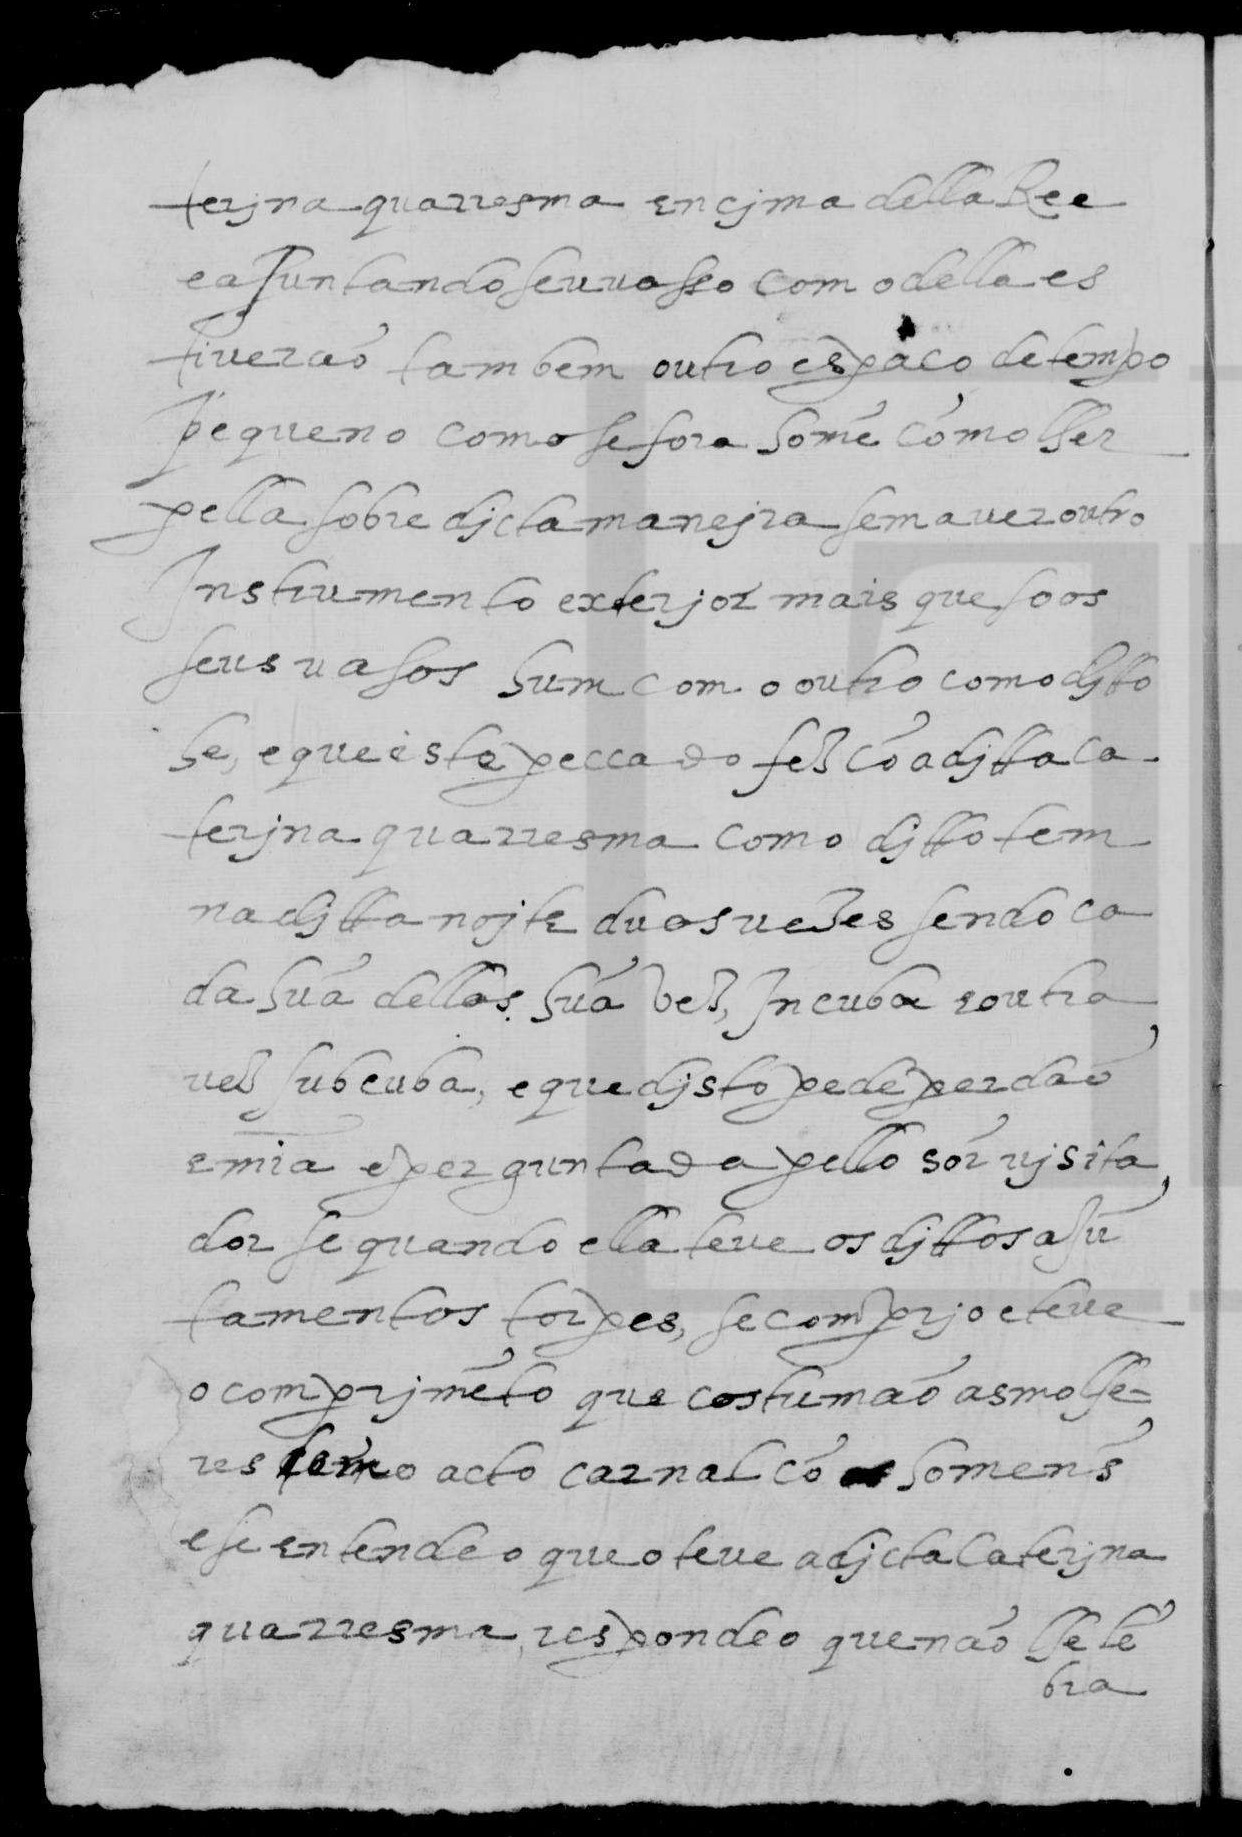 terjna quarresma encjma della Ree
e ajuntando seu uasso com o della es
tiueraõ tambem outro espaço de tempo
pequeno como se fora homẽ cõ molher
pella sobre djcta manejra sem auer outro
Instrumento exterjor mais que so os
seus uasos hum com o outro como djtto
he, e que este peccado fez cõ a djtta ca
terjna quarresma como djtto tem
na djtta nojte duas uezes sendo ca
da hũa dellas hũa vez, Incuba e outra
uez subcuba, e que djsto pede perdaõ
e mĩa e perguntada pello sõr vjsita
dor se quando ella teue os djttos ajũ
tamentos torpes, se comprjo e teue
o comprjmẽto que costumaõ as molhe-
res no acto carnal cõ homens
e se entendeo que o teue a djcta Caterjna
quarresma, respondeo que naõ lhe lẽ
bra